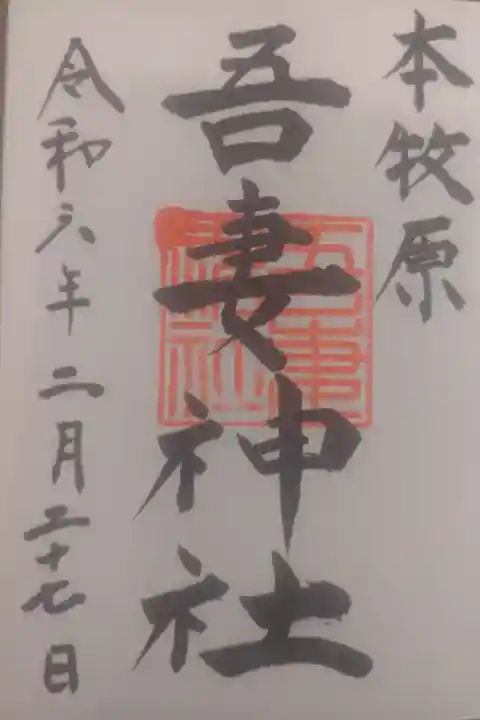 本牧原
吾妻神社
令和六年二月二十七日
吾妻神社